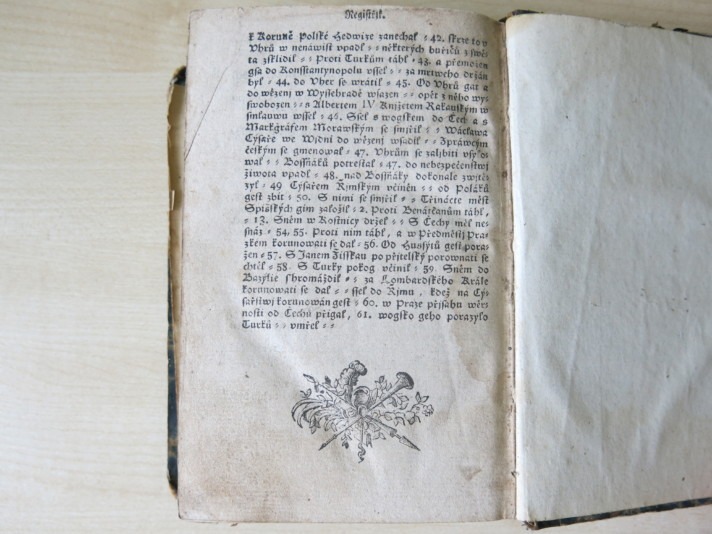 Registřik.
k Koruně Polské Hedwize zanechal ⸗ 42. skrze to v
Vhrů w nenáwist vpadl ⸗ ⸗ některých buřičů z swě-
ta zklidil ⸗ ⸗ Proti Turkům táhl ⸗ 43. a přemožen
gsa do Konstantynopolu vssel ⸗ ⸗ za mrtwého držán
byl ⸗ 44. do Vher se wrátil ⸗ 45. Od Vhrů gat a
do wězenj w Wyssehradě wsazen ⸗ ⸗ opět z něho wy-
swobozen ⸗ ⸗ s Albertem IV Knjžetem Rakauským w
smlauwu wssel ⸗ 46. Ssel s wogskem do Čech a s
Markgrafem Morawským se smjřil ⸗ ⸗ Wácława
Cýsaře we Wjdni do wězenj wsadil ⸗ ⸗ Zpráwcým
českým se gmenowal ⸗ 47. Vhrům se zaljbiti vsylo-
wal ⸗ ⸗ Bosňáky potrestal ⸗ 47. do nebezpečenstwj
žiwota vpadl ⸗ 48. nad Bosňáky dokonale zwjtě-
zyl ⸗ 49 Cýsařem Řjmským včiněn ⸗ ⸗ od Poláků
gest zbit ⸗ 50. S nimi se smjřil ⸗ ⸗ Třinácte měst
Spišských gim založil ⸗ 2. Proti Benátčanům táhl,
⸗ 13. Sněm w Kostnicy držel ⸗ ⸗ S Čechy měl nes-
snáz ⸗ 54. 55. Proti nim táhl, a w Předměstj Pra-
žském korunowati se dal ⸗ 56. Od Husytů gest pora-
žen ⸗ 57. S Janem Žižkau po přátelsky porownati se
chtěl ⸗ 58. S Turky pokog včinil ⸗ 59. Sněm do
Bazylie shromáždil ⸗ ⸗ za Lombardského Krále
korunowati se dal ⸗ ⸗ ssel do Řjmu, kdež na Cý-
sařstwj korunowán gest ⸗ 60. w Praze přjsahu wěr-
nosti od Čechů přigal, 61. wogsko geho porazylo
Turků ⸗ ⸗ vmřel ⸗ ⸗